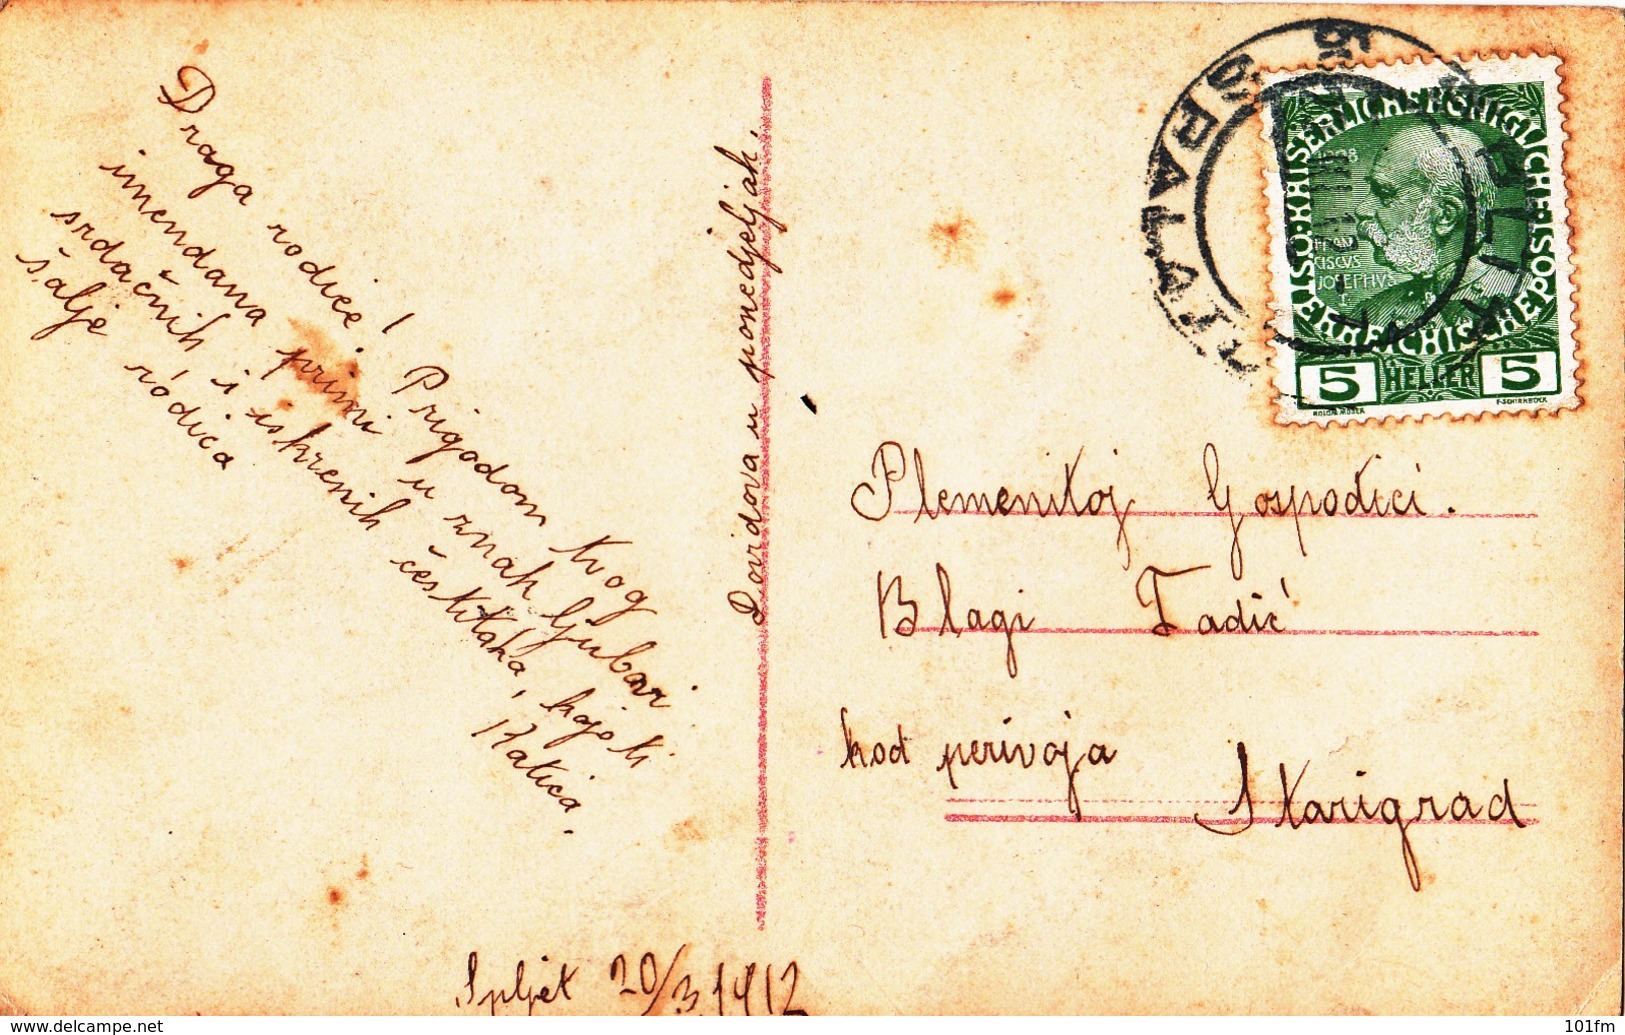 Draga rodice! Prigodom tvog
imendana primi u znak ljubavi
srdačnih i iskrenih čestitaka, koje ti
šalje rodica Katica.
u ponedjeljak.
Spljet 20/3 1912
Plemenitoj Gospodici.
Blagi Tadić
kod perivoja
Starigrad
SPALATO
SPLJET
KAISERLICHE KÖNIGLICHE ÖSTERREICHISCHE POST
1908
FRAN
CISCVS
JOSEPHVS
I.
5 HELLER 5
KOLOM. MOSER
F. SCHIRNBÖCK
www.delcampe.net
101fm